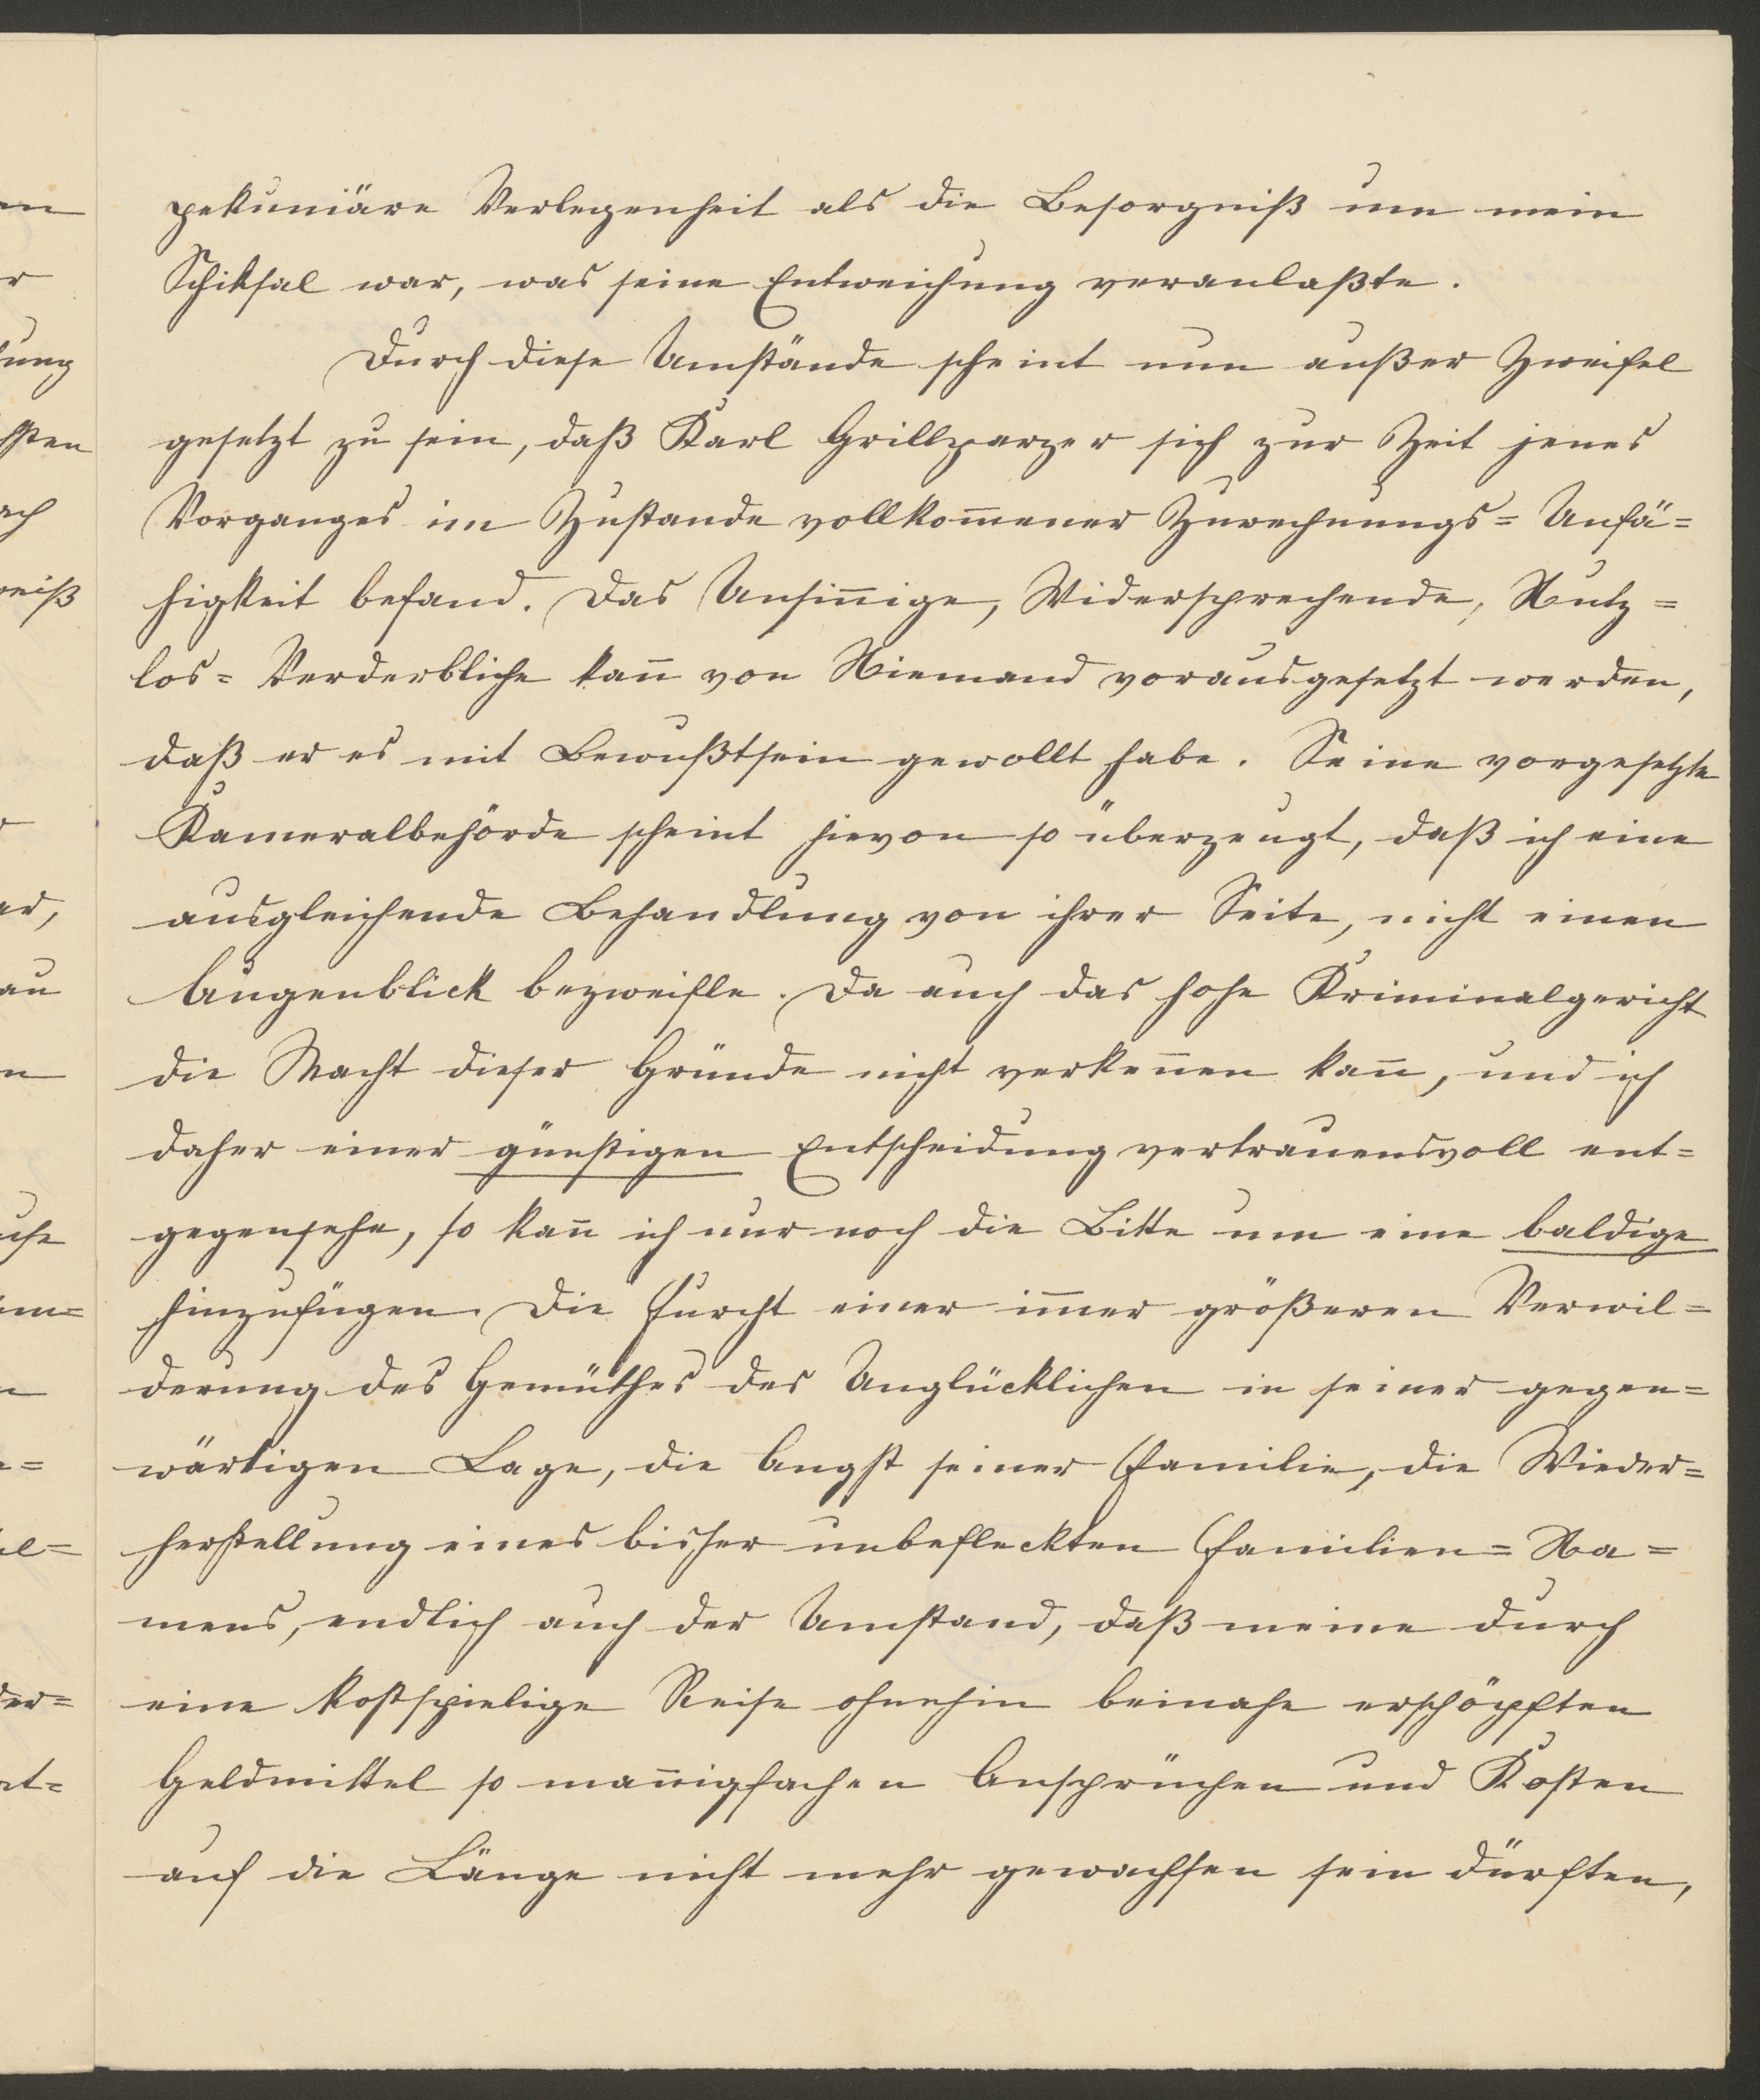 pekuniäre Verlegenheit als die Besorgniß um mein
Schiksal war, was seine Entweichung veranlaßte.
Durch diese Umstände scheint nun außer Zweifel
gesetzt zu sein, daß Karl Grillparzer sich zur Zeit jenes
Vorganges im Zustande vollkom̄ener Zurechnungs= Unfä=
higkeit befand. Das Unsin̄ige, Widersprechende, Nutz=
los= Verderbliche kan̄ von Niemand vorausgesetzt werden,
daß er es mit Bewußtsein gewollt habe. Seine vorgesetzte
Kameralbehörde scheint hievon so überzeugt, daß ich eine
ausgleichende Behandlung von ihrer Seite, nicht einen
Augenblick bezweifle. Da auch das hohe Kriminalgericht
die Macht dieser Gründe nicht verken̄en kan̄, und ich
daher einer günstigen Entscheidung vertrauensvoll ent=
gegensehe, so kan̄ ich nur noch die Bitte um eine baldige
hinzufügen. Die Furcht einer im̄er größeren Verwil=
derung des Gemüthes des Unglücklichen in seiner gegen=
wärtigen Lage, die Angst seiner Familie, die Wieder=
herstellung eines bisher unbefleckten Familien= Na=
mens, endlich auch der Umstand, daß meine durch
eine kostspielige Reise ohnehin beinahe erschöpften
Geldmittel so man̄igfachen Ansprüchen und Kosten
auf die Länge nicht mehr gewachsen sein dürften,